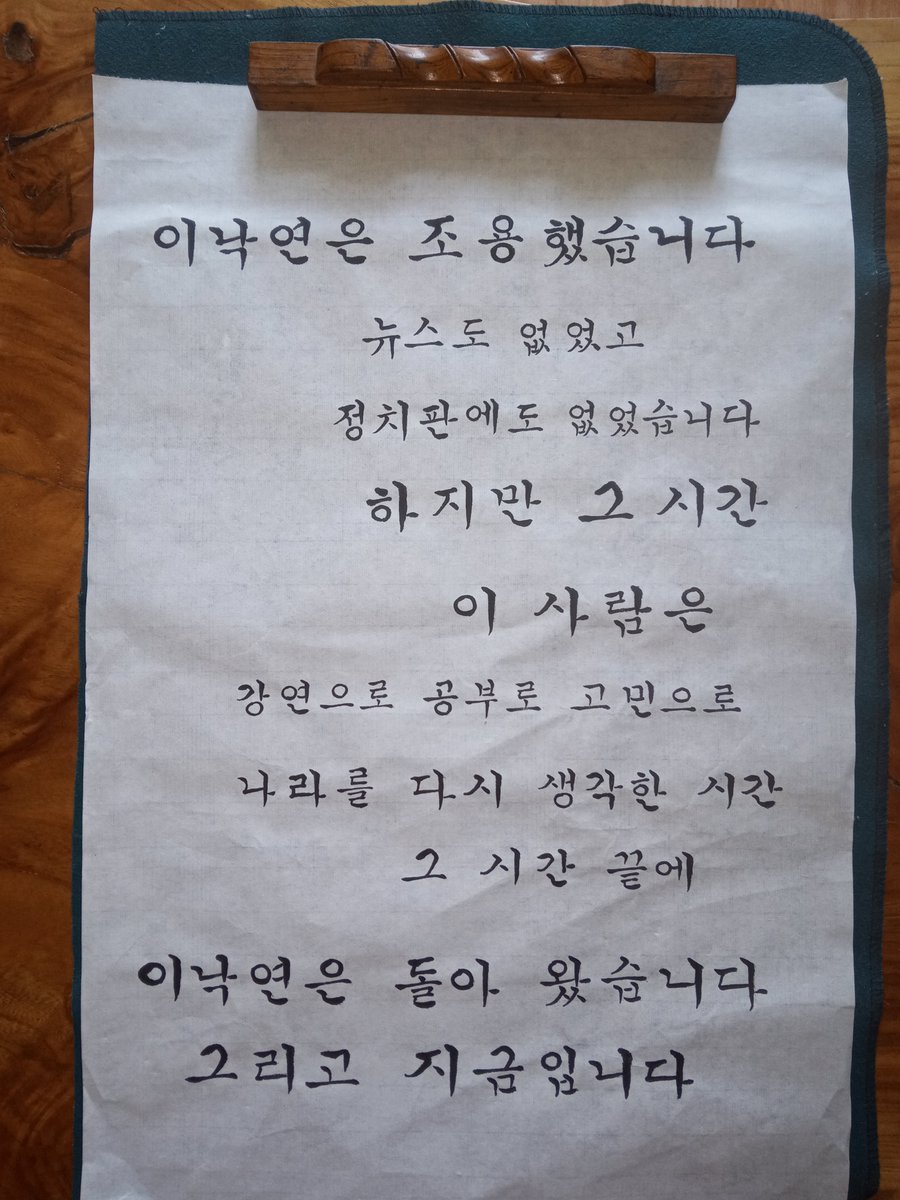 이낙연은 조용했습니다
뉴스도 없었고
정치판에도 없었습니다
하지만 그 시간
이 사람은
강연으로 공부로 고민으로
나라를 다시 생각한 시간
그 시간 끝에
이낙연은 돌아 왔습니다
그리고 지금입니다